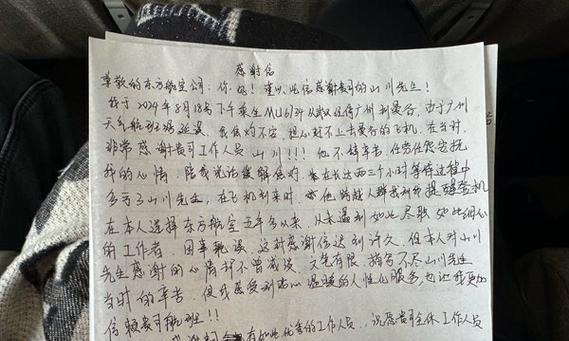 感谢信
尊敬的东方航空公司：你好！谨以此信感谢贵司的山川先生！
我于2024年8月18号下午乘坐MU6134从武汉经停广州到曼谷，由于广州
天气航班延误，我焦灼不安，担心赶不上去曼谷的飞机，在当时，
非常感谢贵司工作人员山川！！！他不辞辛苦，任劳任怨安抚
我的心情，陪我说话缓解焦灼，在长达两三个小时等待过程中
多亏了山川先生，在飞机到来时，他跨越人群来到我提醒登机
在本人选择东方航空五年多以来，从未遇到如此尽职如此细心
的工作者，因车耽误，这封感谢信迟到许久，但本人对山川
先生感谢的心情却不曾减淡，文笔有限，描写不尽山川先生
当时的辛苦，但我感受到贴心温暖的人性化服务，也让我更加
信赖贵司航班！！
有如此优秀的工作人员，祝愿贵司全体工作人员